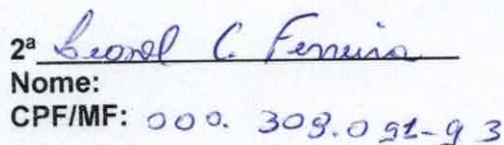 2ª Leonel C. Ferreira
Nome:
CPF/MF: 000. 309.091-93